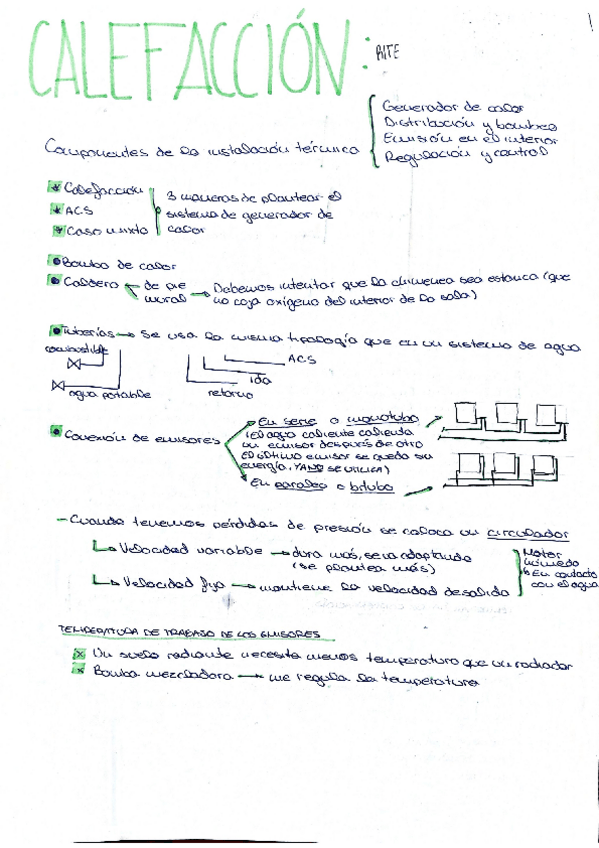 CALEFACCIÓN: RITE
1
Componentes de la instalación térmica
Generador de calor
Distribución y bombeo
Emisión en el interior
Regulación y control
* Calefacción
* ACS
* Caso mixto
3 maneras de plantear el
sistema de generador de
calor
Bomba de calor
Caldera de pie
mural
Debemos intentar que la chimenea sea estanca (que
no coja oxígeno del interior de la sala)
Tuberías → Se usa la misma tipología que en un sistema de agua
combustible
agua potable
ACS
ida
retorno
Conexión de emisores
En serie o monotubo
(El agua caliente calienta
un emisor después de otro
El último emisor se queda sin
energía, YA NO SE UTILIZA)
En paralelo o bitubo
- Cuando tenemos pérdidas de presión se coloca un circulador
Velocidad variable → dura más, se va adaptando
(se plantea más)
Velocidad fija → mantiene la velocidad de salida
Motor
húmedo
En contacto
con el agua
TEMPERATURA DE TRABAJO DE LOS EMISORES
Un suelo radiante necesita menos temperatura que un radiador
Bomba mezcladora → me regula la temperatura